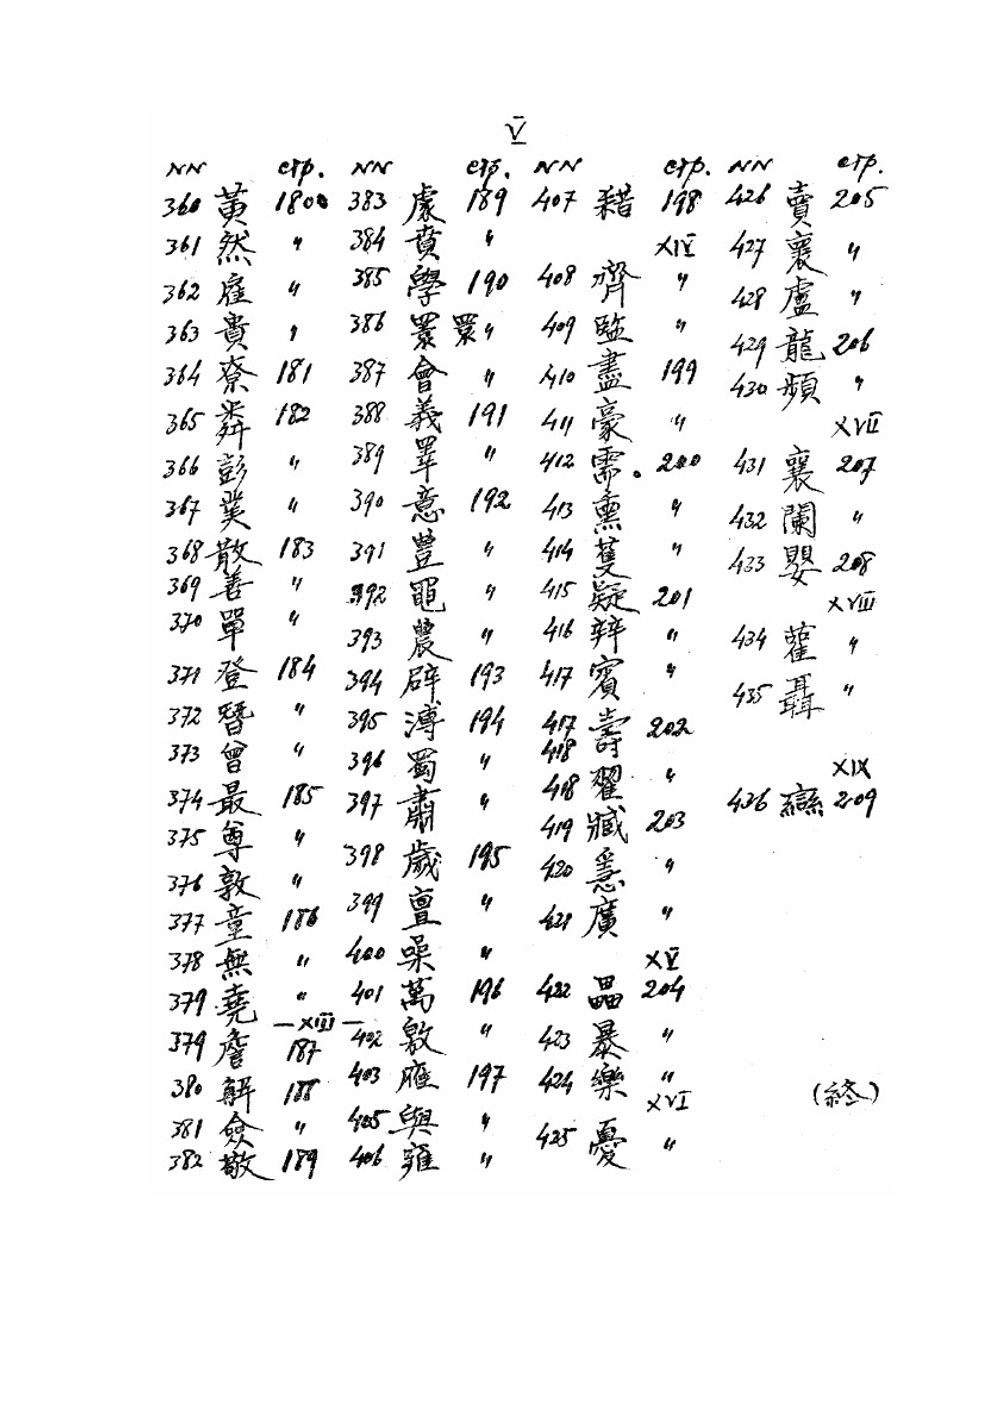 V
NN стр.
360 黃 180
361 然 〃
362 雇 〃
363 貴 〃
364 尞 181
365 粦 182
366 彭 〃
367 菐 〃
368 散 183
369 善 〃
370 單 〃
371 登 184
372 朁 〃
373 曾 〃
374 最 185
375 尊 〃
376 敦 〃
377 童 186
378 無 〃
379 堯 〃
— XIII —
379 詹 187
380 解 188
381 僉 〃
382 敬 189
NN стр.
383 豦 189
384 賁 〃
385 學 190
386 睘 〃
387 會 〃
388 義 191
389 睪 〃
390 意 192
391 豊 〃
392 黽 〃
393 農 〃
394 辟 193
395 溥 194
396 蜀 〃
397 肅 〃
398 歲 195
399 亶 〃
400 喿 〃
401 萬 196
402 敫 〃
403 雁 197
405 與 〃
406 雍 〃
NN стр.
407 耤 198
XIV
408 齊 〃
409 監 〃
410 盡 199
411 豪 〃
412 需 200
413 熏 〃
414 蒦 〃
415 疑 201
416 辡 〃
417 賓 〃
417 壽 202
418
418 翟 〃
419 臧 203
420 㥯 〃
421 廣 〃
XV
422 畾 204
423 暴 〃
424 樂 〃
XVI
425 憂 〃
NN стр.
426 賣 205
427 襄 〃
428 盧 〃
429 龍 206
430 頻 〃
XVII
431 襄 207
432 闌 〃
433 嬰 208
XVIII
434 雚 〃
435 聶 〃
XIX
436 䜌 209
(終)